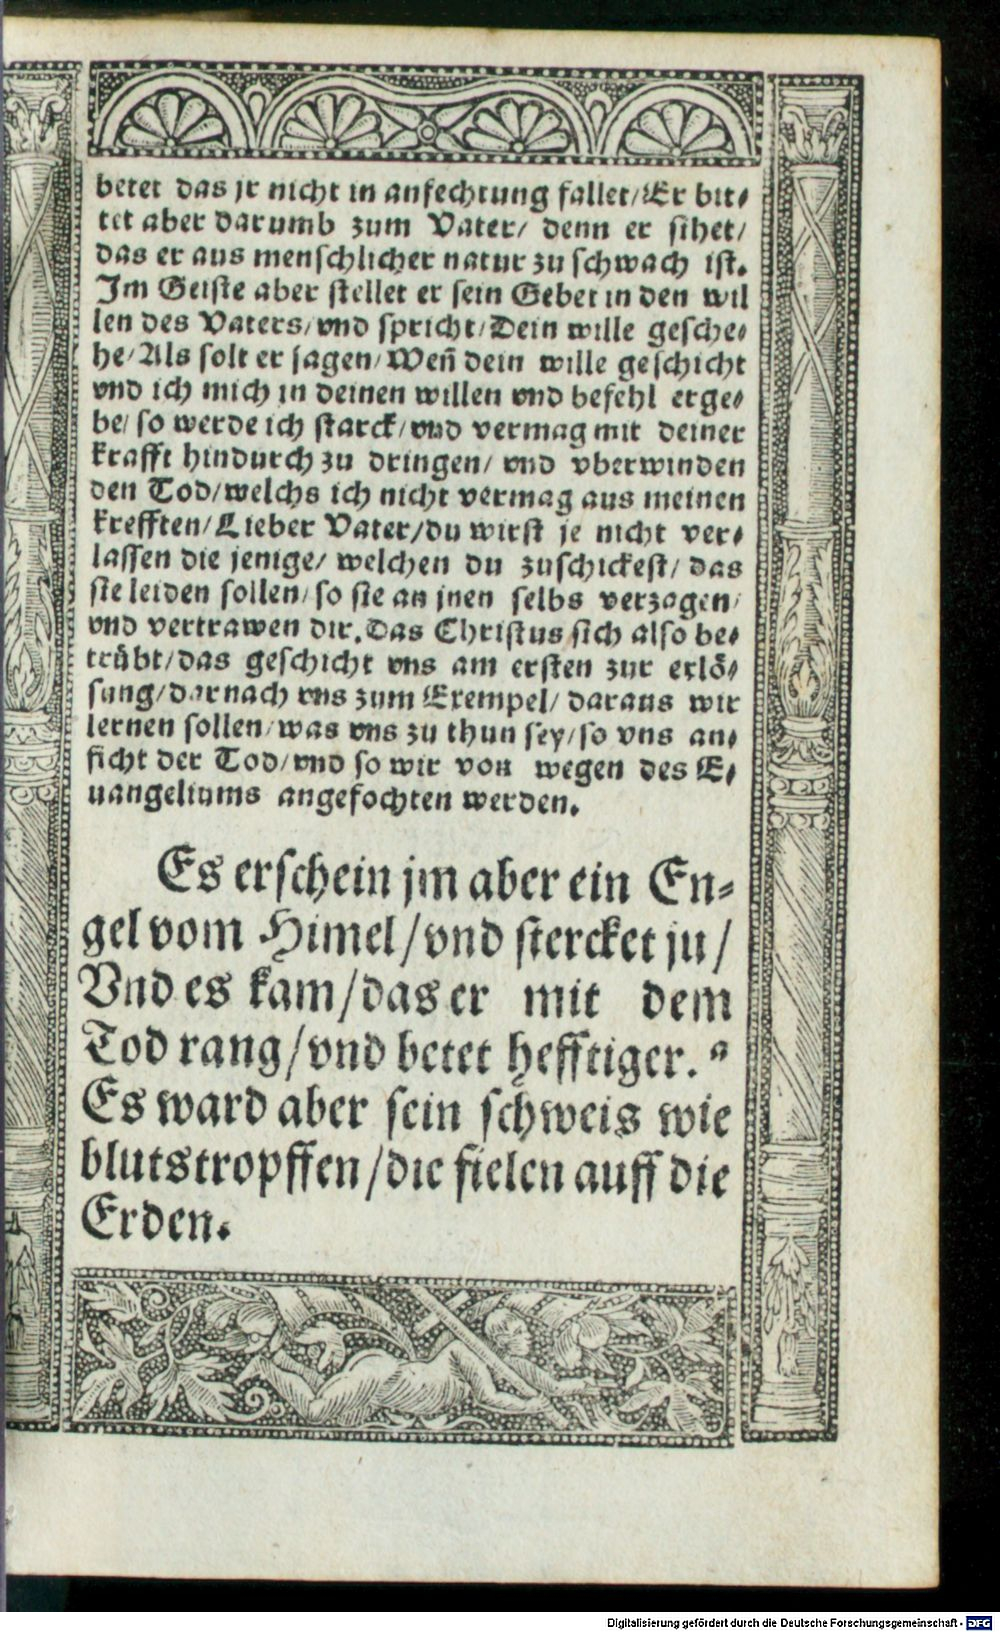 betet das jr nicht in anfechtung fallet/Er bit⸗
tet aber darumb zum Vater/ denn er sihet/
das er aus menschlicher natur zu schwach ist.
Im Geiste aber stellet er sein Gebet in den wil
len des Vaters/vnd spricht/Dein wille gesche⸗
he/Als solt er sagen/Weñ dein wille geschicht
vnd ich mich in deinen willen vnd befehl erge⸗
be/ so werde ich starck/vnd vermag mit deiner
krafft hindurch zu dringen/ vnd vberwinden
den Tod/welchs ich nicht vermag aus meinen
krefften/Lieber Vater/du wirst je nicht ver⸗
lassen die jenige/ welchen du zuschickest/ das
sie leiden sollen/so sie an jnen selbs verzagen/
vnd vertrawen dir. Das Christus sich also be⸗
trübt/das geschicht vns am ersten zur erlö⸗
sung/darnach vns zum Exempel/ daraus wir
lernen sollen/was vns zu thun sey/so vns an⸗
ficht der Tod/vnd so wir von wegen des E⸗
uangeliums angefochten werden.
Es erschein jm aber ein En⸗
gel vom Himel/vnd stercket jn/
Vnd es kam/das er mit dem
Tod rang/vnd betet hefftiger. "
Es ward aber sein schweis wie
blutstropffen/die fielen auff die
Erden.
Digitalisierung gefördert durch die Deutsche Forschungsgemeinschaft - DFG